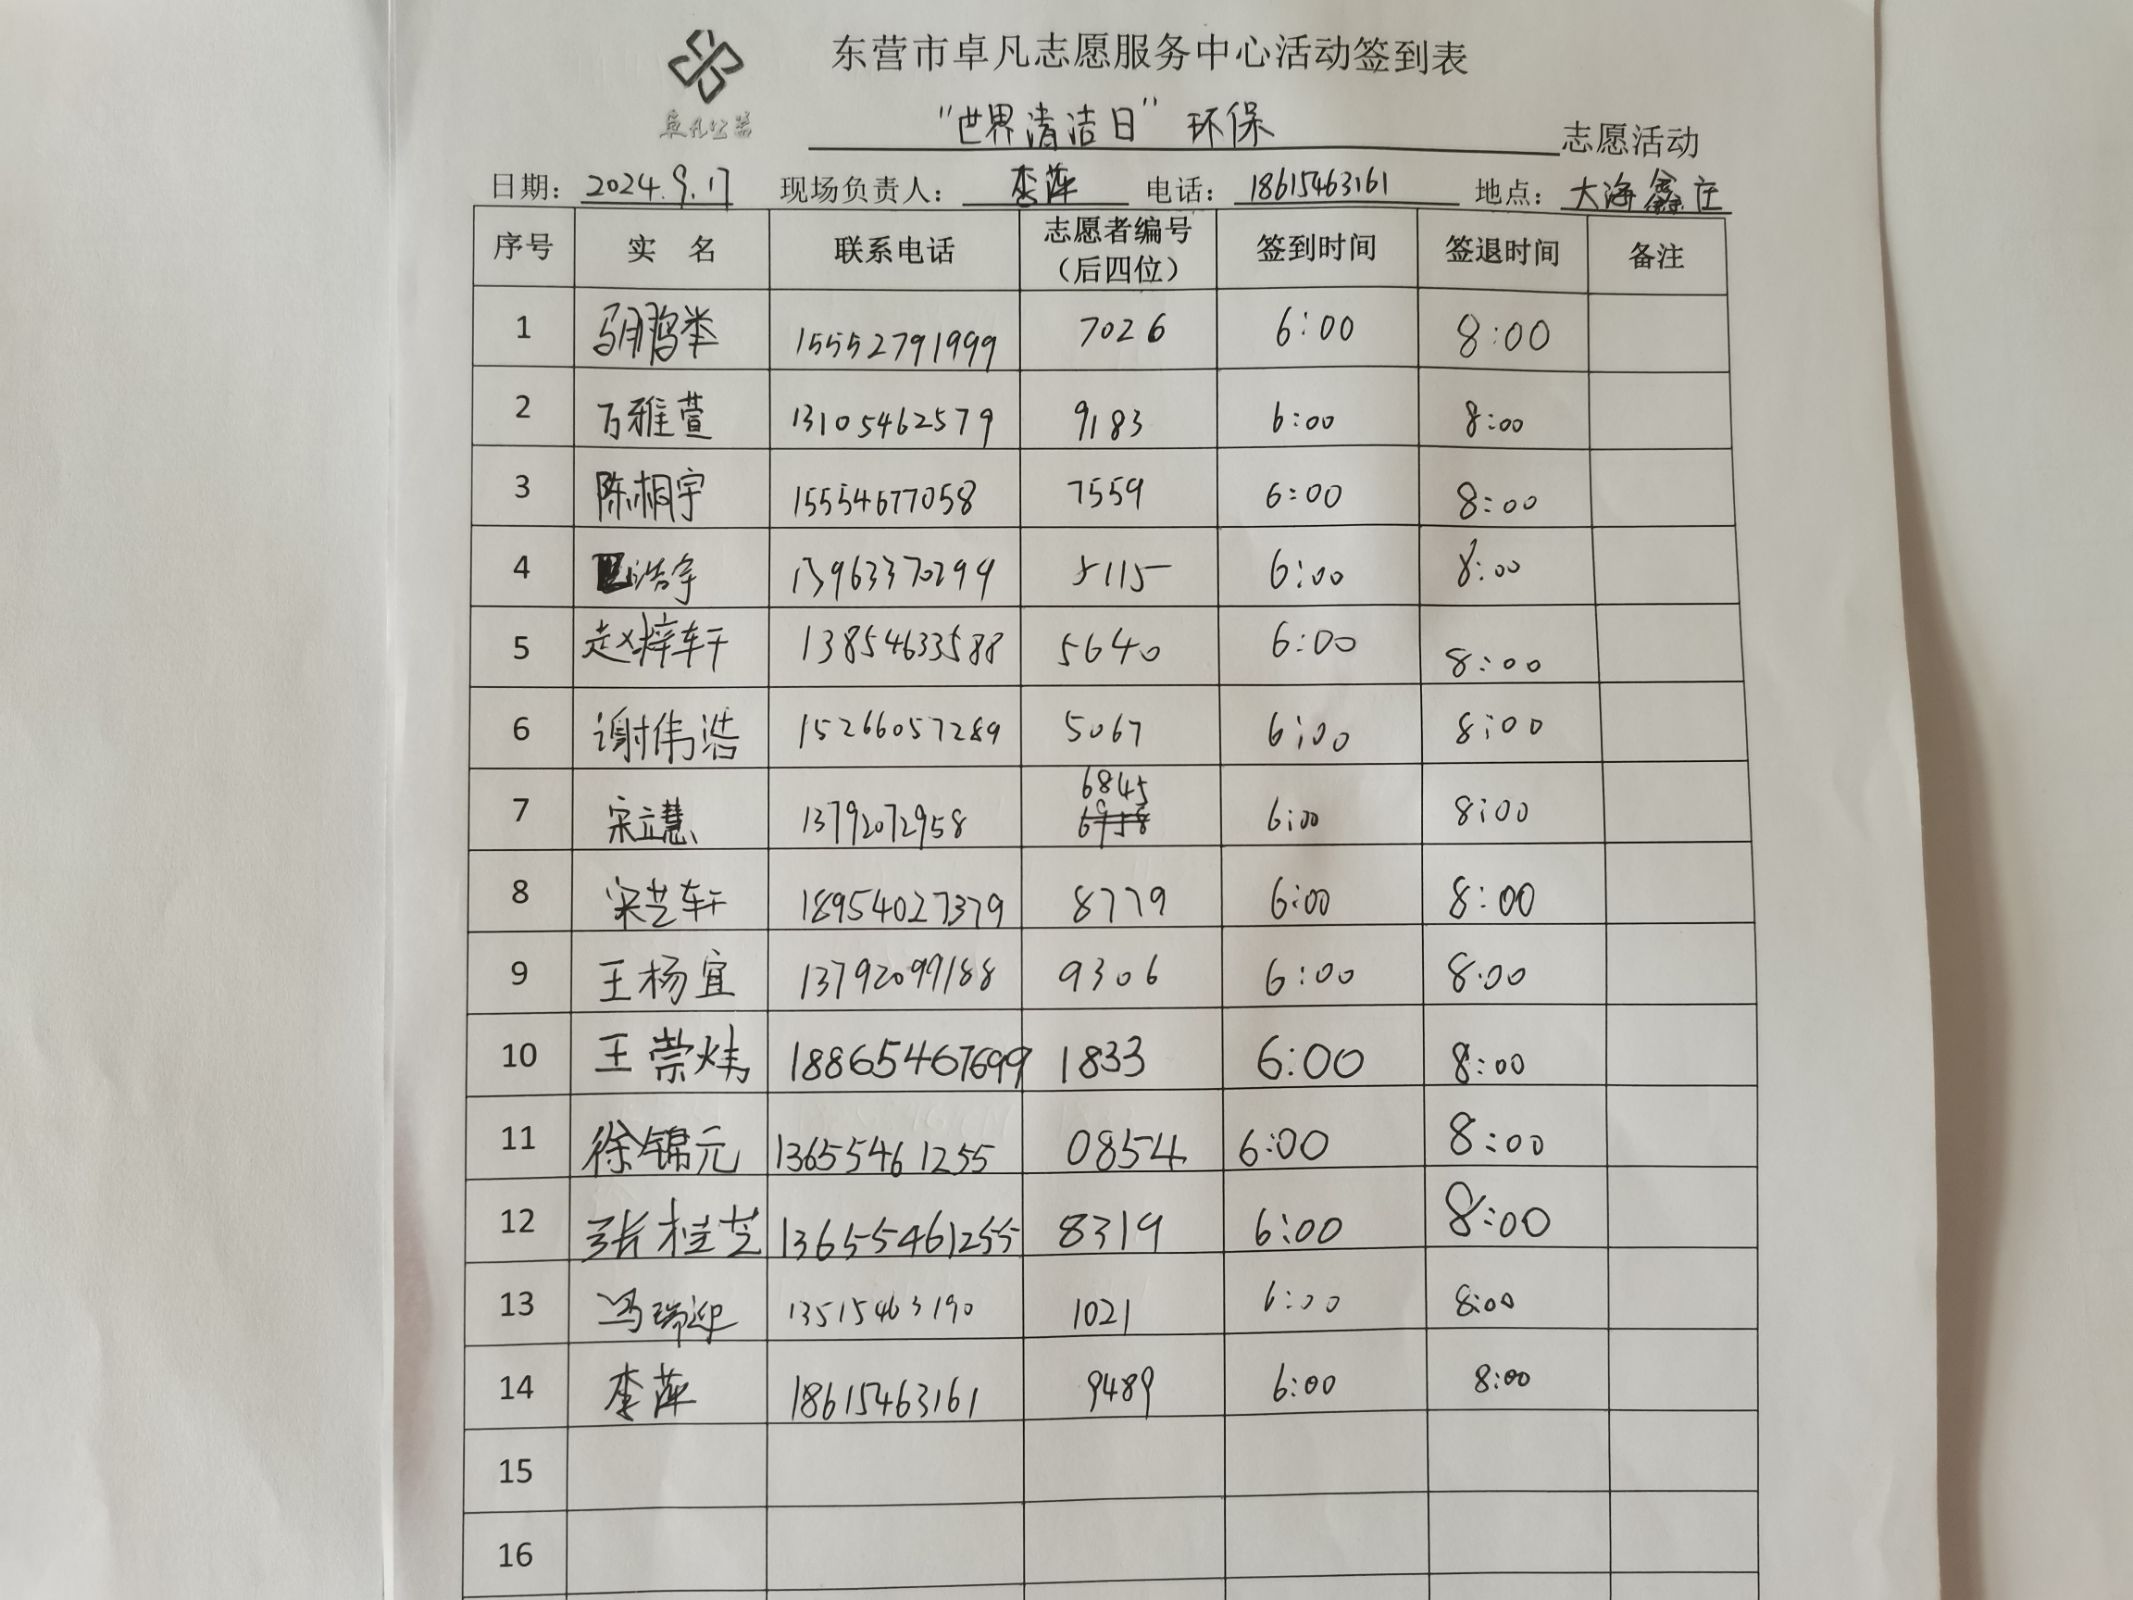 东营市卓凡志愿服务中心活动签到表
卓凡公益
“世界清洁日”环保 志愿活动
日期：2024.9.17 现场负责人：李萍 电话：18615463161 地点：大海鑫庄
序号 实 名 联系电话 志愿者编号（后四位） 签到时间 签退时间 备注
1 马鹏举 15552791999 7026 6:00 8:00
2 万雅萱 13105462579 9183 6:00 8:00
3 陈相宇 15554677058 7559 6:00 8:00
4 浩宇 13963370299 5115 6:00 8:00
5 赵梓轩 13854633588 5640 6:00 8:00
6 谢伟浩 15266057289 5067 6:00 8:00
7 宋立慧 13792072958 6845 6:00 8:00
8 宋芝轩 18954027379 8779 6:00 8:00
9 王杨宜 13792099188 9306 6:00 8:00
10 王崇炜 18865467699 1833 6:00 8:00
11 徐锦元 13655461255 0854 6:00 8:00
12 张桂芝 13655461255 8319 6:00 8:00
13 冯瑞迎 13515463190 1021 6:00 8:00
14 李萍 18615463161 9489 6:00 8:00
15
16